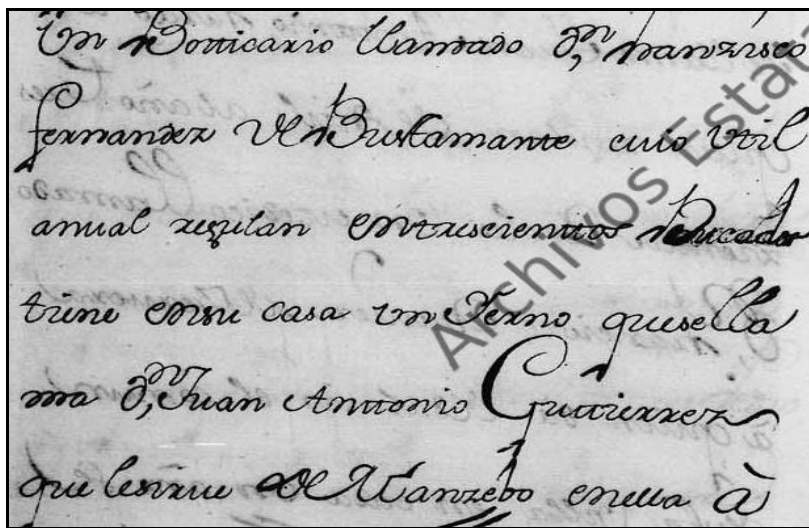 Un Botticario llamado Dn, Franzisco
fernandez de Bustamante cuio Util
anual regulan enttrescienttos Ducados
tiene ensu casa un Yerno quesella
ma Dn, Juan Anttonio Guttierrez
que lesirue de Manzebo enella à
Archivos Estata